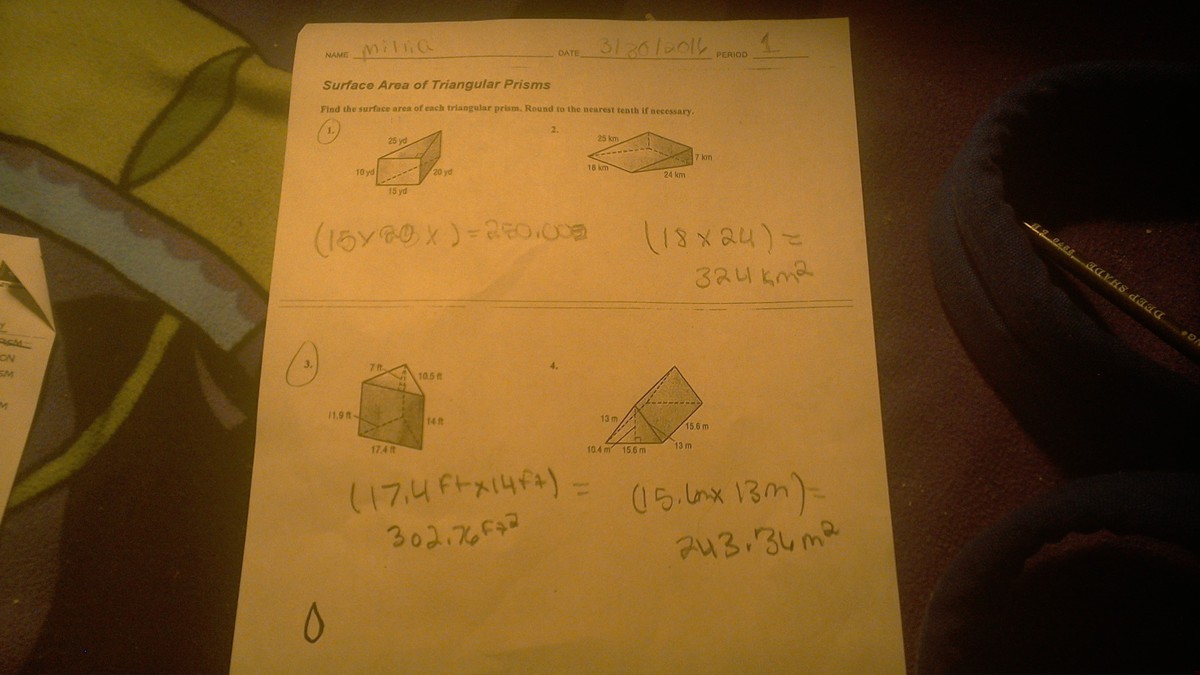 NAME DATE 3/30/2016 PERIOD 1
Surface Area of Triangular Prisms
Find the surface area of each triangular prism. Round to the nearest tenth if necessary.
1.
25 yd
10 yd
20 yd
15 yd
2.
25 km
7 km
18 km
24 km
(18 x 24) =
324 km²
3.
7 ft
10.5 ft
11.9 ft
14 ft
17.4 ft
4.
13 m
15.6 m
10.4 m 15.6 m 13 m
(17.4 ft x 14 ft) =
302.76 ft²
(15.6m x 13m) =
243.36 m²
0
DEEP SHADE
ON